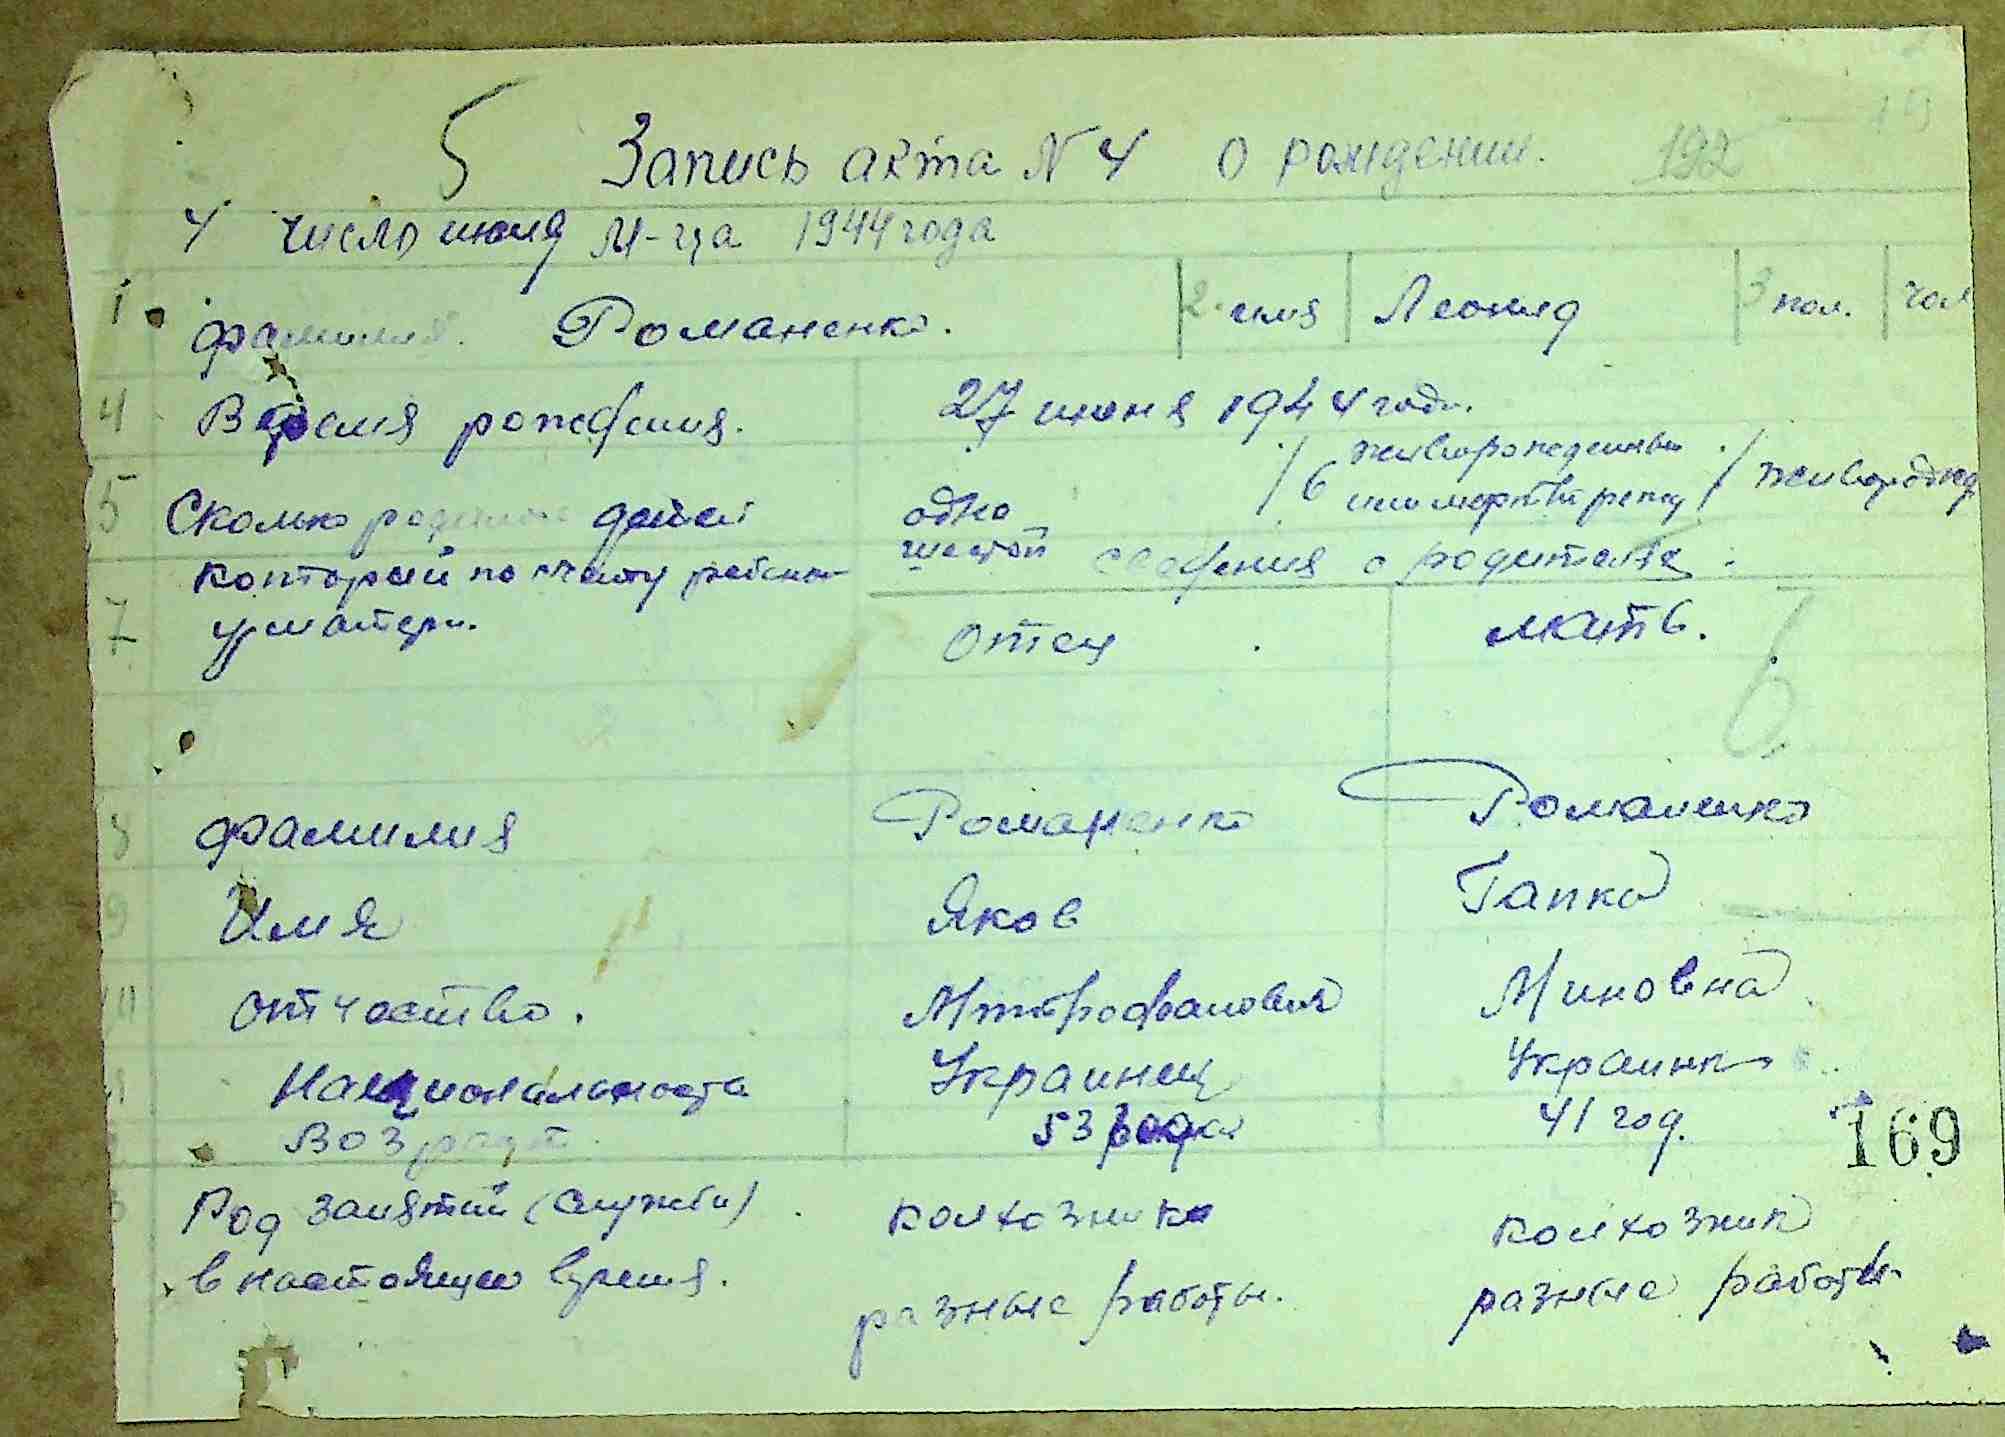 5 Запись акта N 4 о рождении. 192
4 число июля м-ца 1944 года
1 фамилия. Романенко. 2. имя Леонид 3 пол. чол
4 Время рождения. 27 июня 1944 года.
5 Сколько родилось детей одно 6 живорожденный или мертворожд живорожд
7 который по счету ребенок у матери. шестой
сведения о родителях.
отец мать.
6
8 фамилия Романенко Романенко
9 Имя Яков Гапка
10 отчество. Митрофанович Миновна
11 Национальность Украинец Украинка
Возраст 53 года 41 год.
169
Род занятий (службы) колхозник колхозник
в настоящее время. разные работы. разные работы